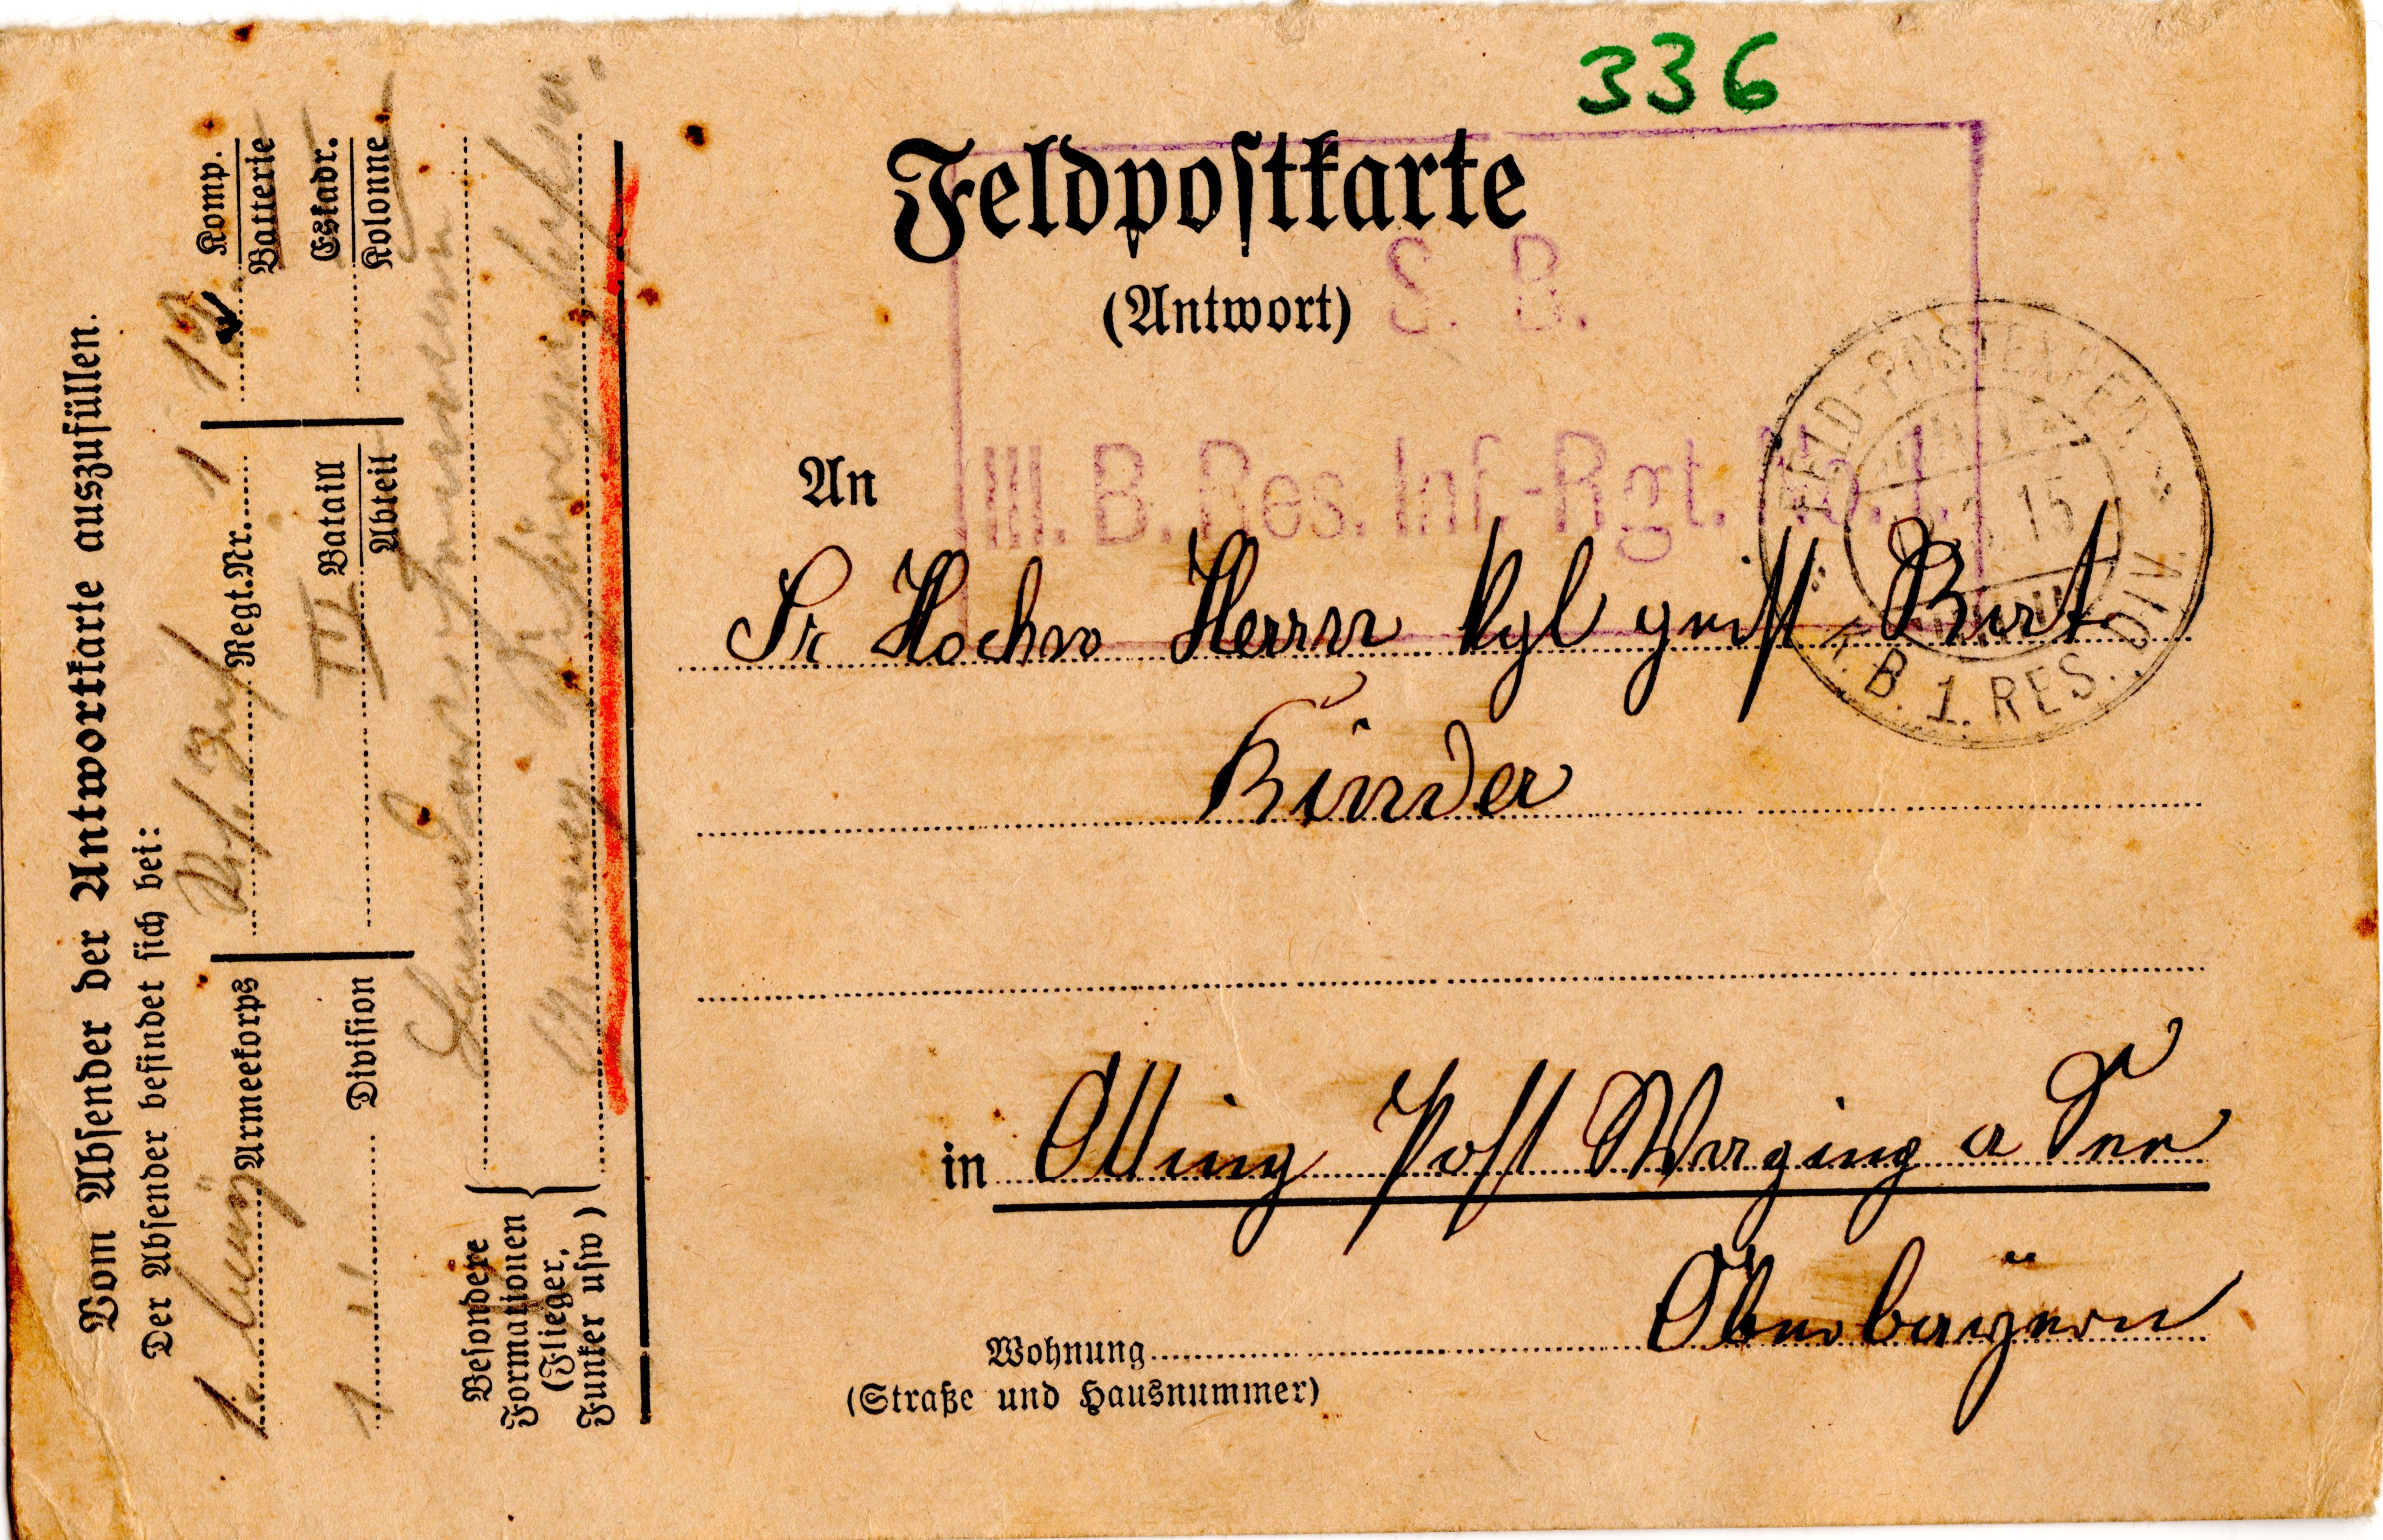 336
Feldpostkarte
(Antwort)
S. B.
III. B. Res. Inf.-Rgt. No. 1.
FELD-POSTEXPED.
15
B. 1. RES. DIV.
An
Sr Hochw Herrn Kgl geistl Rat
Kinder
in Otting Post Waging a See
Oberbayern
Wohnung
(Straße und Hausnummer)
Vom Absender der Antwortkarte auszufüllen.
Der Absender befindet sich bei:
1. Armeekorps Res. Inf. Regt.Nr. 1 12 Komp.
Batterie
1 Division III Bataill Eskadr.
Abteil Kolonne
Besondere
Formationen
(Flieger,
Funker usw)